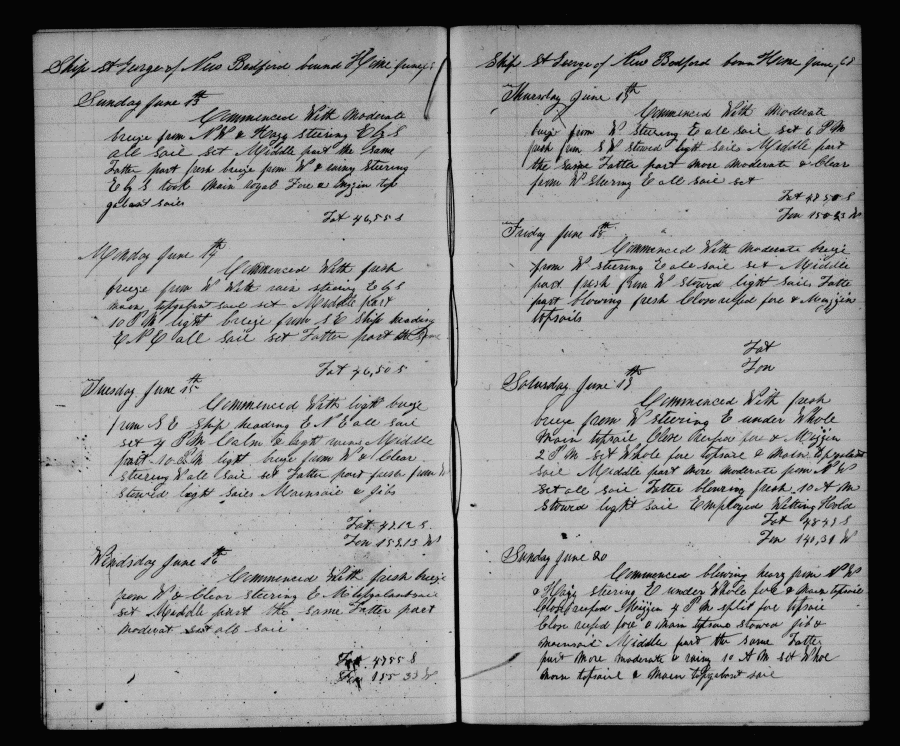 Ship St George of New Bedford bound Home June
Sunday June 13th
Commenced With moderate
breeze from NW & Hazy steering E by S
all sail set Middle part the same
Latter part fresh breeze from W & rainy steering
E by S took main royal Fore & mizzin top
galant sails
Lat 46,55 S
Monday June 14th
Commenced With fresh
breeze from W With rain steering E by S
main topgalant sail set Middle part
10 P M light breeze from S E Ship heading
E N E all sail set Latter part the same
Lat 46,50 S
Tuesday June 15th
Commenced With light breeze
from S E Ship heading E N E all sail
set 4 P M Calm & light winds Middle
part 10 P M light breeze from W & Clear
steering E all sail set Latter part fresh from W
stowed light sails Mainsail & jibs
Lat 47,12 S
Lon 159,13 W
Wendsday June 16th
Commenced With fresh breeze
from W & Clear steering E M topgalant sail
set Middle part the same Latter part
moderat set all sail
Lat 47,55 S
Lon 155 33 W
Ship St George of New Bedford boun Home June 68
Thursday June 17th
Commenced With moderate
breeze from W Steering E all sail set 6 P M
fresh from S W stowed light sails Middle part
the same Latter part more moderate & Clear
from W steering E all sail set
Lat 47 50 S
Lon 150 43 W
Friday June 18th
Commenced With moderate breeze
from W steering E all sail set Middle
part fresh from W stowed light sails Latter
part blowing fresh Close reefed fore & Mizzin
topsails
Lat
Lon
Saturday June 19th
Commenced With fresh
breeze from W steering E under Whole
main topsail Close reefed fore & Mizzin
2 P M set Whole fore topsail & main topgalant
sail Middle part more moderate from N W
set all sail Latter blowing fresh 10 A M
stowed light sail Employed Wetting Hold
Lat 48 43 S
Lon 140,31 W
Sunday June 20
Commenced blowing heavy from N W
& Hazy steering E under Whole fore & main topsails
Close reefed Mizzen 4 P M split fore topsail
Close reefd fore & main topsails stowed jib &
mainsail Middle part the same Latter
part more moderate & rainy 10 A M set Whole
main topsail & main topgalant sail